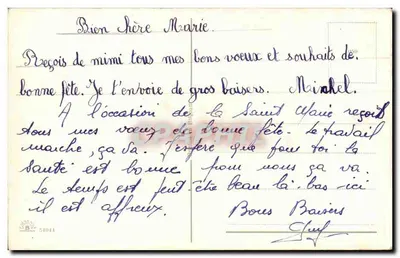 Bien chère Marie.
Reçois de mimi tous mes bons voeux et souhaits de
bonne fête. Je t'envoie de gros baisers. Michel.
A l'occasion de la Saint Marie reçoit
tous mes vœux de bonne fête. le travail
marche, ça va. J'espère que pour toi la
santé est bonne, pour nous ça va.
Le temps est peut-être beau là-bas ici
il est affreux.
Bons Baisers
Guy